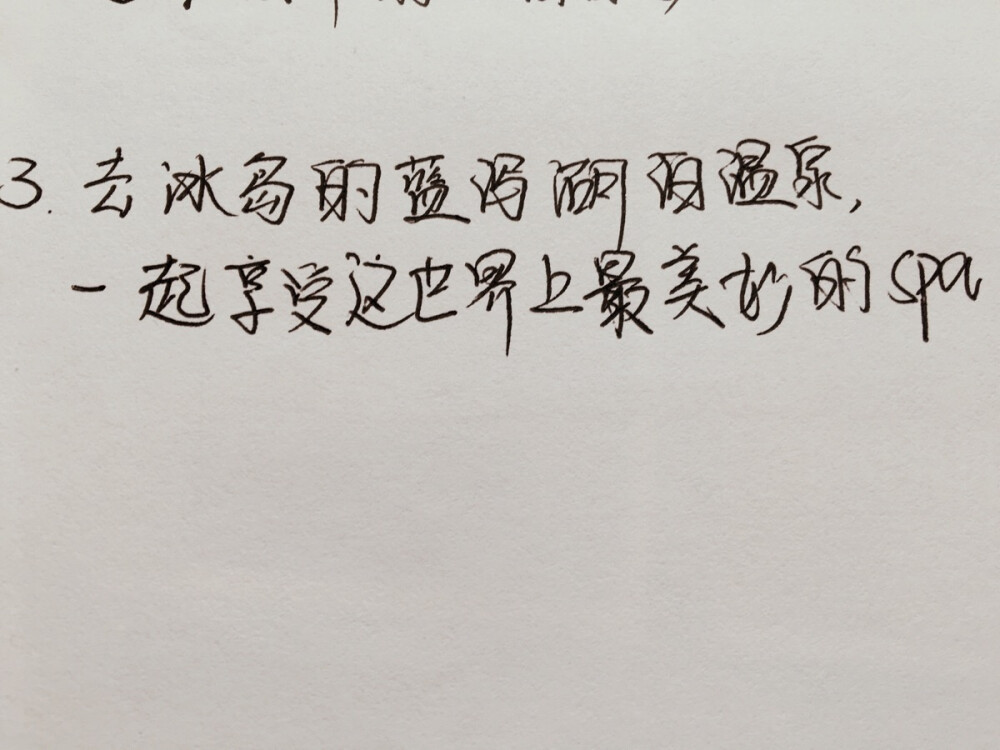 3. 去冰岛的蓝泻湖泊温泉,
一起享受这世界上最美妙的spa